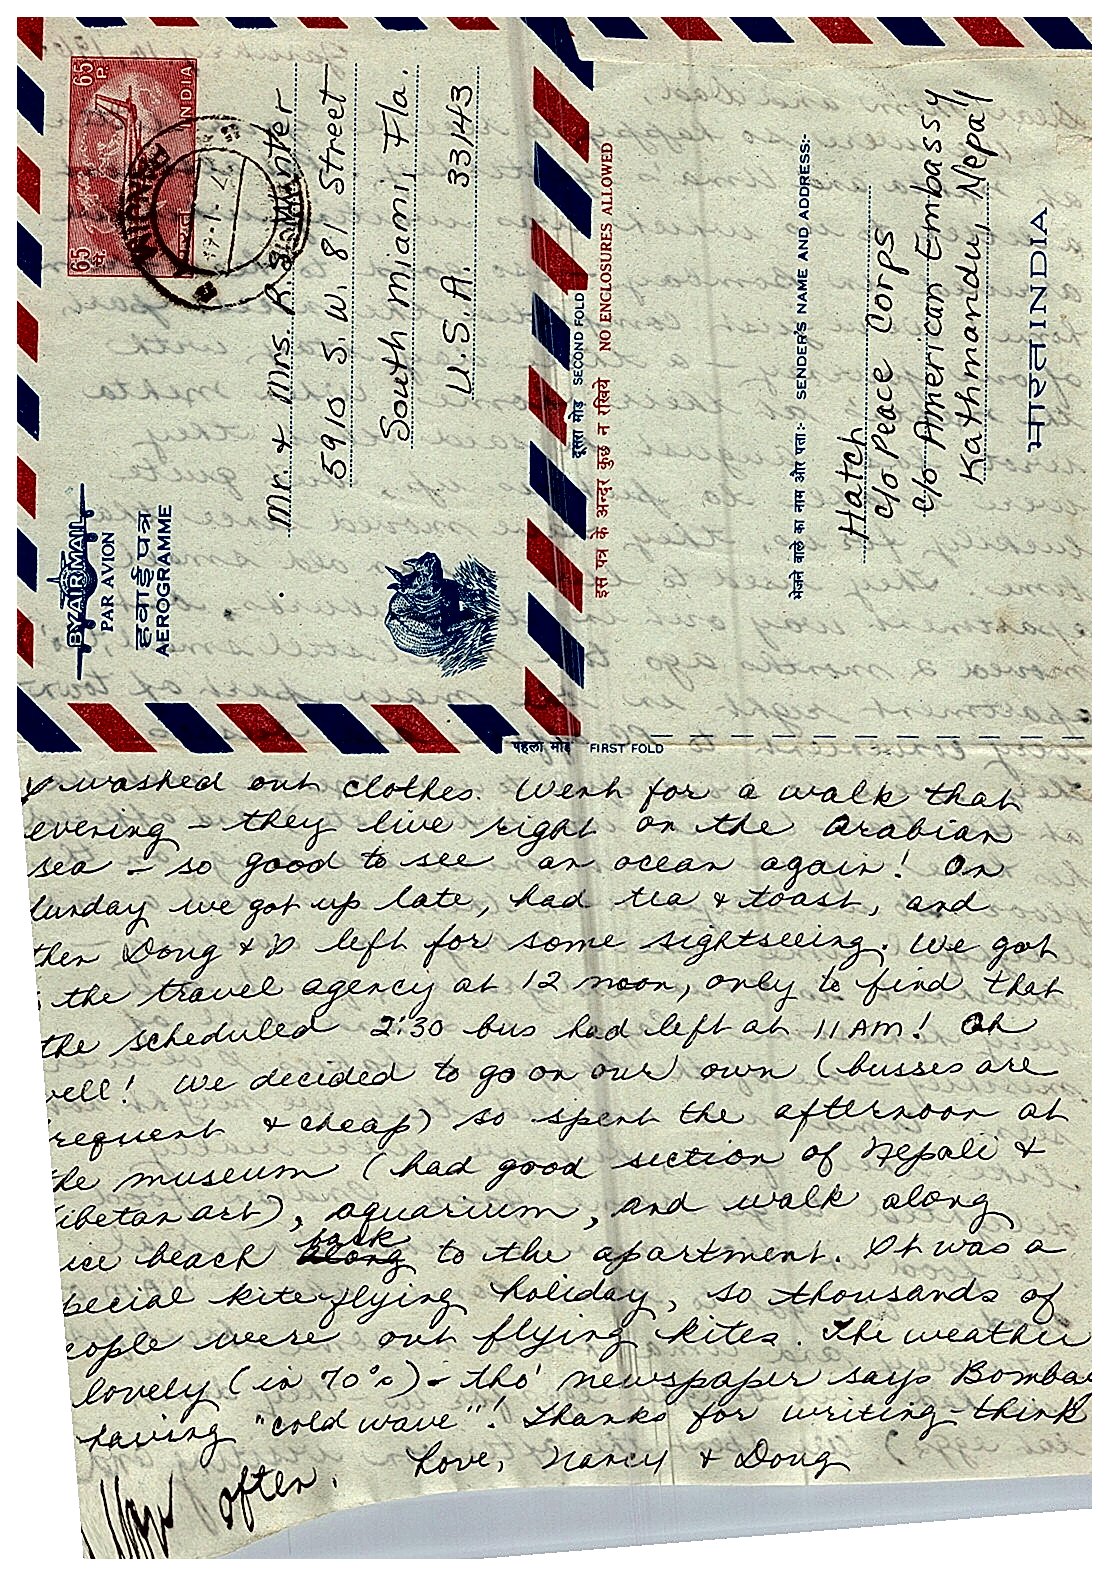 65
P.
INDIA
65
प.
भारत
BY AIR MAIL
PAR AVION
हवाई पत्र
AEROGRAMME
Mr & Mrs. R. S. Hunter
5910 S.W. 81 Street
South Miami, Fla.
U.S.A. 33143
दूसरा मोड़ SECOND FOLD
इस पत्र के अन्दर कुछ न रखिये NO ENCLOSURES ALLOWED
भेजने वाले का नाम और पता:- SENDER'S NAME AND ADDRESS:-
Hatch
c/o Peace Corps
c/o American Embassy
Kathmandu, Nepal
भारत INDIA
पहला मोड़ FIRST FOLD
I washed out clothes. Went for a walk that
evening – they live right on the Arabian
sea – so good to see an ocean again! On
unday we got up late, had tea & toast, and
then Doug & I left for some sightseeing. We got
the travel agency at 12 noon, only to find that
the scheduled 2:30 bus had left at 11 AM! Oh
well! We decided to go on our own (busses are
requent & cheap) so spent the afternoon at
the museum (had good section of Nepali &
ibetan art), aquarium, and walk along
ice beach along back to the apartment. It was a
pecial kite-flying holiday, so thousands of
eople were out flying kites. The weather
lovely (in 70°s) – tho' newspaper says Bombay
having "cold wave"! Thanks for writing – think
often. Love, Nancy & Doug